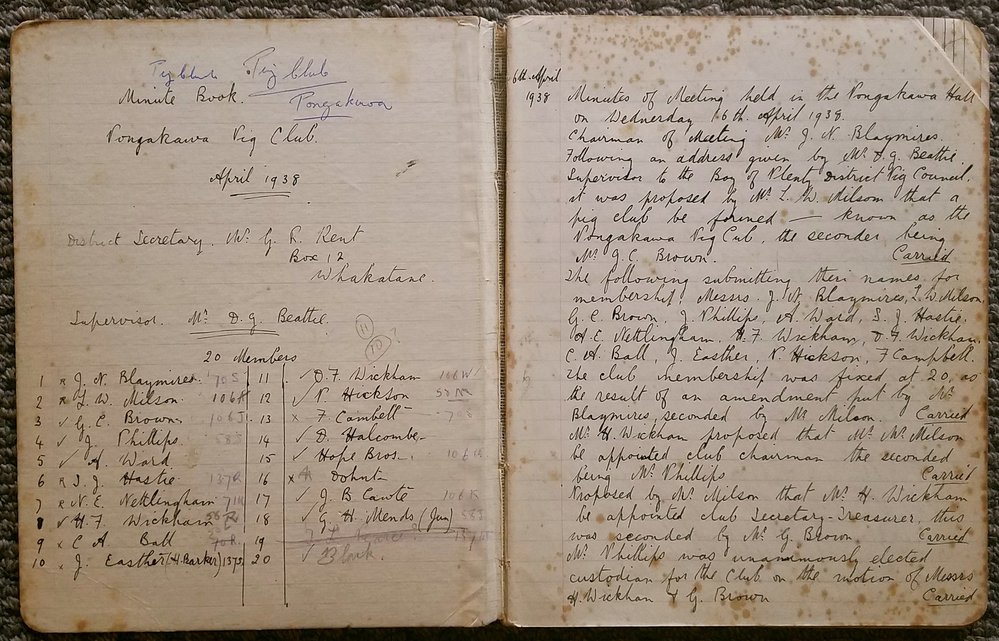 Pig Club Pig Club
Minute Book. Pongakawa
Pongakawa Pig Club.
April 1938
District Secretary. Mr G. R. Kent
Box 12
Whakatane.
Supervisor. Mr D. G. Beattie.
11
10 ?
20 Members
1 x J. N. Blaymires 70S
2 x L. W. Milson 106A
3 ✓ G. C. Brown 106J
4 ✓ J. Phillips 58S
5 ✓ A. Ward
6 x S. J. Hastie 137R
7 x N. E. Nettlingham 71R
8 ✓ H. F. Wickham
9 x C A Ball
10 x J. Easther (H. Barker) 137S
11 ✓ D. F. Wickham 106W
12 ✓ N. Hickson 58M
13 x F. Cambell 70S
14 ✓ D. Halcombe
15 ✓ Hope Bros. 106R
16 x Dohnt
17 ✓ J. B Cawte 106K
18 ✓ G. H. Mends (Jun) 58J
19
20 ✓ Blark.
6th April
1938
Minutes of Meeting held in the Pongakawa Hall
on Wednesday 6th. April 1938.
Chairman of Meeting Mr J. N. Blaymires.
Following an address given by Mr D. G. Beattie.
Supervisor to the Bay of Plenty District Pig Council.
it was proposed by Mr L. W. Milsom that a
pig club be formed — known as the
Pongakawa Pig Cub, the seconder being
Mr G. C. Brown. Carried
The following submitting their names for
membership Messrs. J. N. Blaymires, L. W. Milson,
G. C. Brown, J. Phillips, A. Ward, S. J. Hastie,
N. E. Nettlingham, H. F. Wickham, D. F. Wickham,
C. A. Ball, J. Easther, N. Hickson, F Campbell.
The club membership was fixed at 20, as
the result of an amendment put by Mr
Blaymires, seconded by Mr Milson Carried
Mr H. Wickham proposed that Mr Milson
be appointed club chairman the seconded
being Mr Phillips Carried
Proposed by Mr Milson that Mr H. Wickham
be appointed club Secretary-Treasurer, this
was seconded by Mr G. Brown Carried
Mr Phillips was unanimously elected
custodian for the Club on the motion of Messrs
H. Wickham & G. Brown Carried